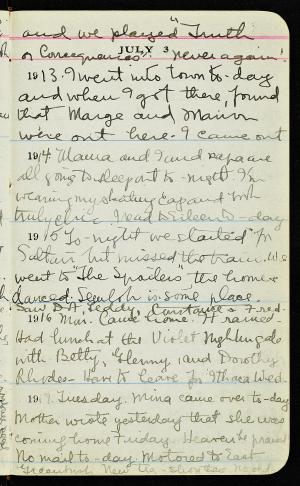 and we played "Truth
or Consequences". Never again!
JULY 3
1913. I went into town to-day
and when I got there, found
that Marge and Marion
were out here. I came out
1914 Mama and I and papa are
all going to sleep out to-night. I'm
wearing my skating cap and look
truly chic. I read to Eileen to-day
1915 To-night we started for
Saltair but missed the train. We
went to "The Spoilers" then home &
danced. is some place.
Saw B.A. Teddy, Constance & Fred.
1916 Mar. came home. It rained.
Had lunch at the Violet Nightingale
with Betty, Glenny, and Dorothy
Rhodes. Have to leave for Ithaca Wed.
191 . Tuesday. Mina came over to-day
Mother wrote yesterday that she was
coming home Friday. Heaven be praised
No mail to-day. Motored to East
Greenbush. New